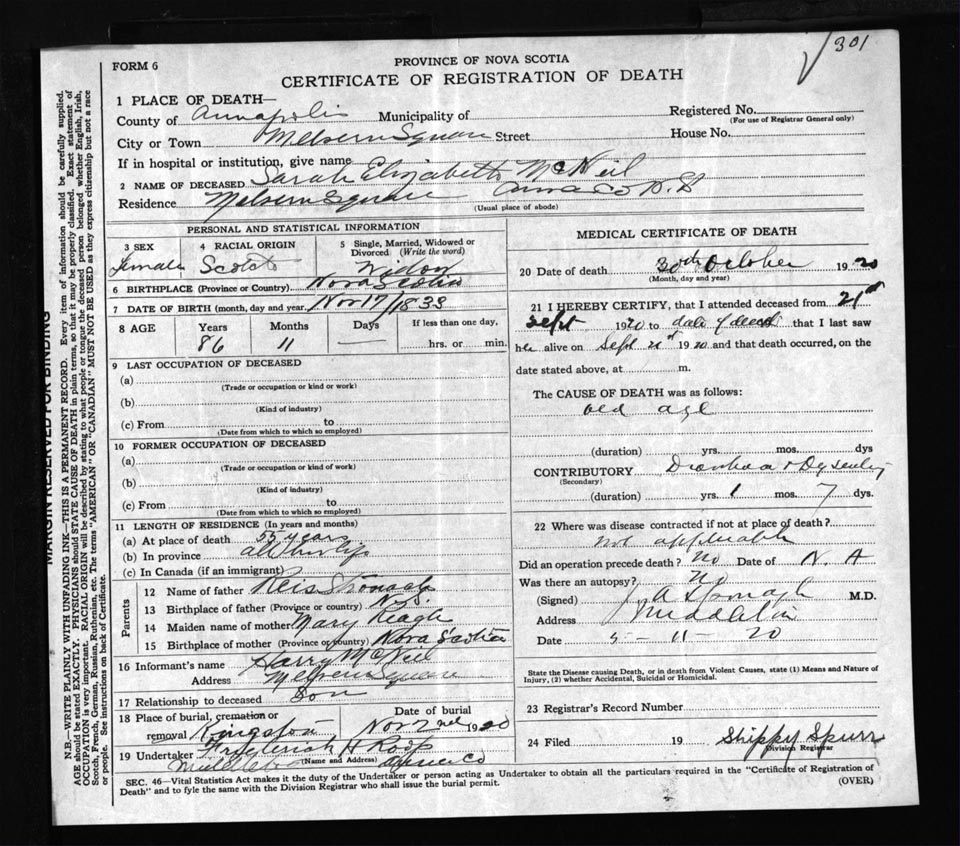 301
PROVINCE OF NOVA SCOTIA
FORM 6
CERTIFICATE OF REGISTRATION OF DEATH
1 PLACE OF DEATH—
County of Annapolis Municipality of Registered No.
(For use of Registrar General only)
City or Town Melvern Square Street House No.
If in hospital or institution, give name
2 NAME OF DECEASED Sarah Elizabeth McNeil
Residence Melvern Square Anna Co N.S.
(Usual place of abode)
PERSONAL AND STATISTICAL INFORMATION
3 SEX 4 RACIAL ORIGIN 5 Single, Married, Widowed or
Divorced (Write the word)
female Scotch Widow
6 BIRTHPLACE (Province or Country) Nova Scotia
7 DATE OF BIRTH (month, day and year) Nov 17/1833
8 AGE Years Months Days If less than one day,
86 11 hrs. or min.
9 LAST OCCUPATION OF DECEASED
(a)
(Trade or occupation or kind or work)
(b)
(Kind of industry)
(c) From to
(Date from which to which so employed)
10 FORMER OCCUPATION OF DECEASED
(a)
(Trade or occupation or kind of work)
(b)
(Kind of industry)
(c) From to
(Date from which to which employed)
11 LENGTH OF RESIDENCE (In years and months)
(a) At place of death 55 years
(b) In province all her life
(c) In Canada (if an immigrant)
Parents
12 Name of father Stronach
13 Birthplace of father (Province or country) N.S.
14 Maiden name of mother Mary Neagh
15 Birthplace of mother (Province or country) Nova Scotia
16 Informant's name Harry McNeil
Address Melvern Square
17 Relationship to deceased Son
18 Place of burial, cremation or Date of burial
removal Kingston Nov 2nd 1920
19 Undertaker Frederick H Roop
(Name and Address)
Middleton Anna Co
MEDICAL CERTIFICATE OF DEATH
20 Date of death 30th October 1920
(Month, day and year)
21 I HEREBY CERTIFY, that I attended deceased from 21st
Sept 1920 to date of death that I last saw
her alive on Sept 21st 1920 and that death occurred, on the
date stated above, at m.
The CAUSE OF DEATH was as follows:
old age
(duration) yrs. mos. dys
CONTRIBUTORY Diarrhoea & Dysentery
(Secondary)
(duration) yrs. 1 mos. 7 dys.
22 Where was disease contracted if not at place of death?
not applicable
Did an operation precede death? no Date of N. A
Was there an autopsy? no
(Signed) J A Sponagle M.D.
Address Middleton
Date 5 - 11 - 20
State the Disease causing Death, or in death from Violent Causes, state (1) Means and Nature of
Injury, (2) whether Accidental, Suicidal or Homicidal.
23 Registrar's Record Number
24 Filed 19 Shippy Spurr
Division Registrar
SEC. 46—Vital Statistics Act makes it the duty of the Undertaker or person acting as Undertaker to obtain all the particulars required in the "Certificate of Registration of
Death" and to fyle the same with the Division Registrar who shall issue the burial permit.
(OVER)
MARGIN RESERVED FOR BINDING
N.B.—WRITE PLAINLY WITH UNFADING INK—THIS IS A PERMANENT RECORD. Every item of information should be carefully supplied.
AGE should be stated EXACTLY. PHYSICIANS should STATE CAUSE OF DEATH in plain terms, so that it may be properly classified. Exact statement of
OCCUPATION is very important. RACIAL ORIGIN will be described by stating to what people or tongue the deceased person belonged whether English, Irish,
Scotch, French, German, Russian, Ruthenian, etc. The terms "AMERICAN" or "CANADIAN" MUST NOT BE USED as they express citizenship but not a race
or people. See instructions on back of Certificate.